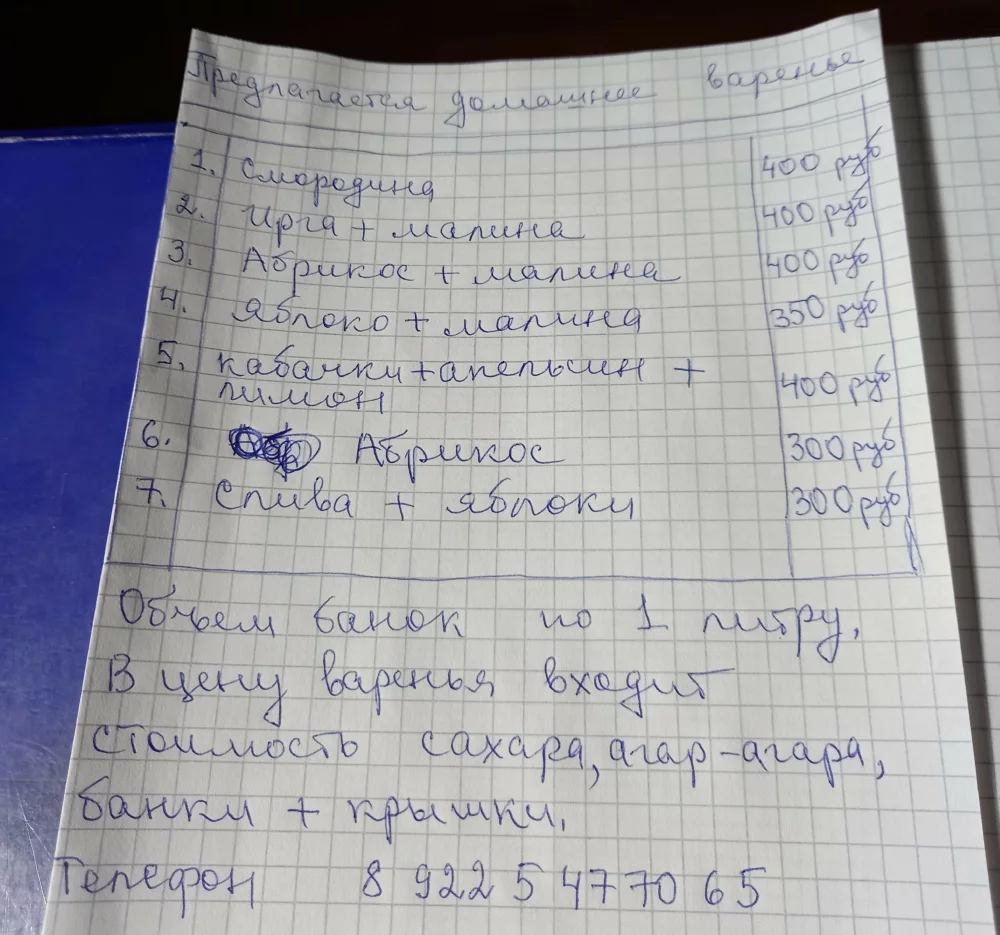 Предлагается домашнее варенье
1. Смородина 400 руб
2. Ирга + малина 400 руб
3. Абрикос + малина 400 руб
4. Яблоко + малина 350 руб
5. Кабачки + апельсин +
лимон 400 руб
6. Абрикос 300 руб
7. Слива + яблоки 300 руб
Объем банок по 1 литру.
В цену варенья входит
стоимость сахара, агар-агара,
банки + крышки.
Телефон 8 922 5 477065